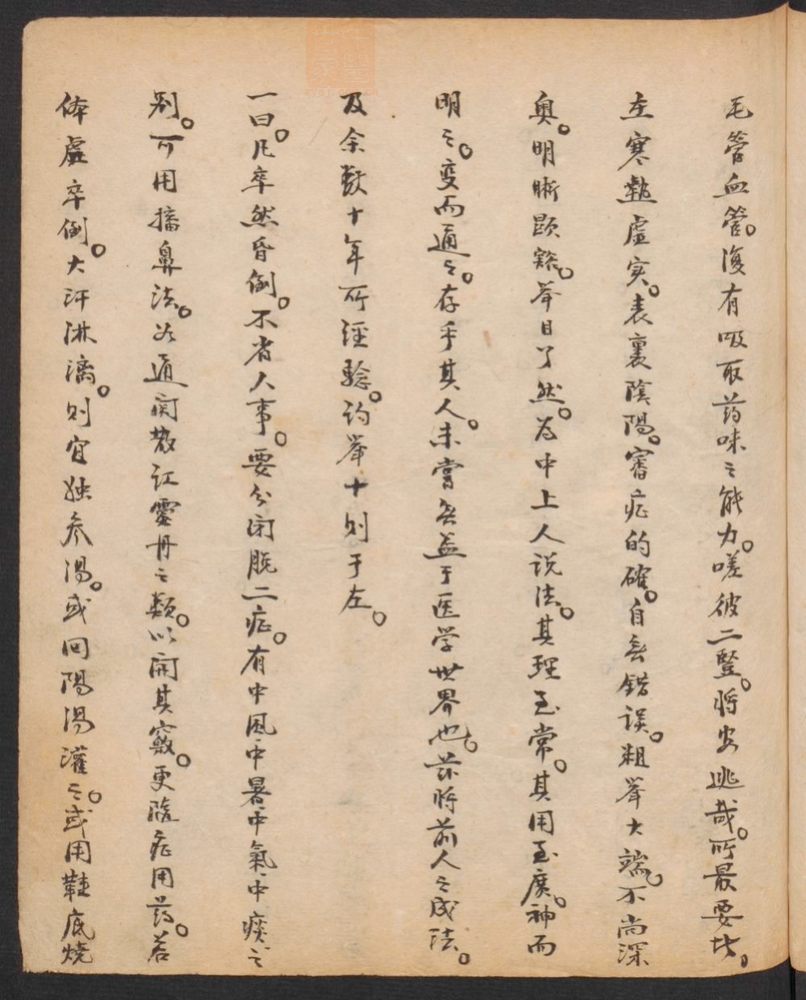 毛管血管。復有吸取药味之能力。嗟彼二豎。将安逃哉。所最要者。
在寒熱虛实。表裏陰陽。審症的確。自無錯误。粗举大端。不尚深
奥。明晰顕豁。举目了然。为中上人说法。其理至常。其用至廣。神而
明之。变而通之。存乎其人。未嘗無益于医学世界也。茲将前人之成法。
及余数十年所经驗。约举十则于左。
一曰。凡卒然昏倒。不省人事。要分闭脱二症。有中风中暑中氣中痰之
别。可用搐鼻法。以通関散红靈丹之類。以開其竅。更隨症用药。若
体虛卒倒。大汗淋漓。则宜独参湯。或回陽湯灌之。或用鞋底燒